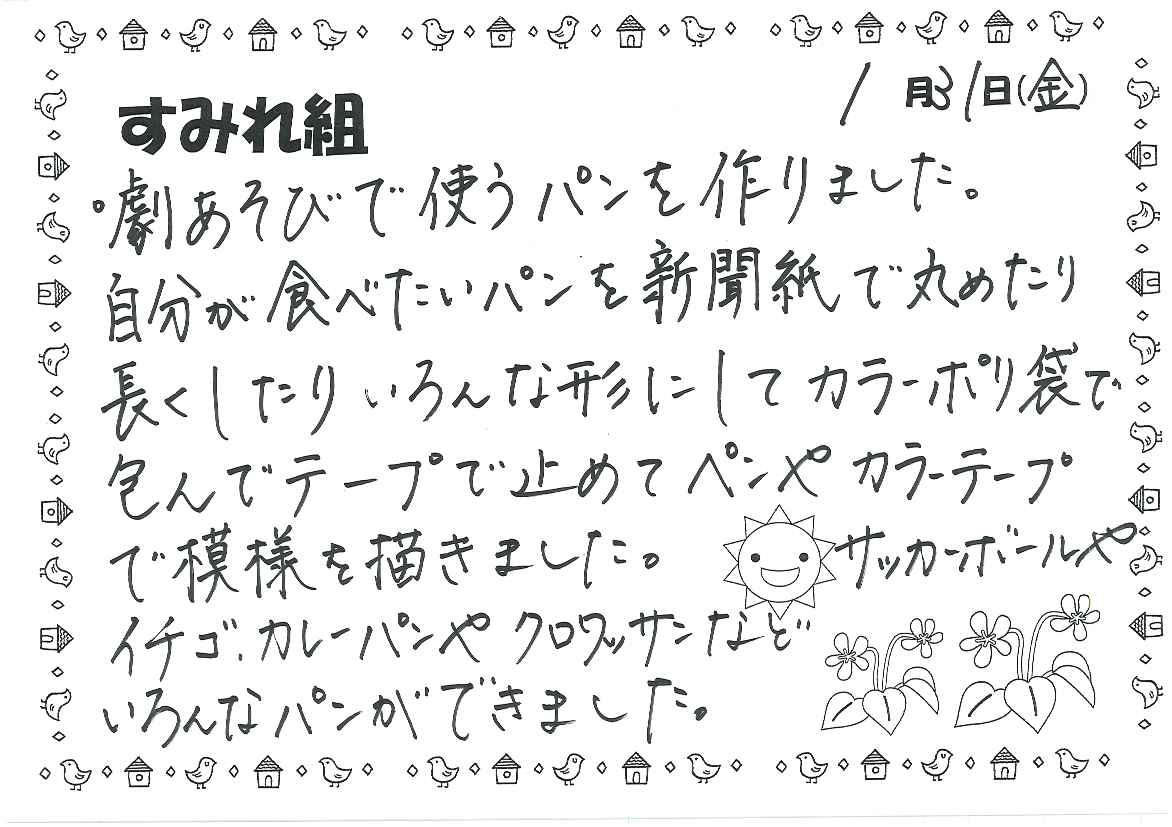 1月31日(金)
すみれ組
。劇あそびで使うパンを作りました。
自分が食べたいパンを新聞紙で丸めたり
長くしたりいろんな形にしてカラーポリ袋で
包んでテープで止めてペンやカラーテープ
で模様を描きました。サッカーボールや
イチゴ、カレーパンやクロワッサンなど
いろんなパンができました。